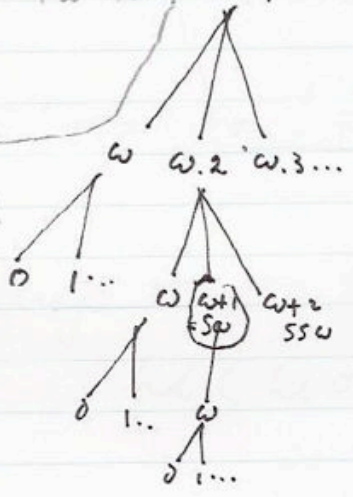 ω ω.2 ω.3...
0 1...
ω ω+1 ω+2
=Sω SSω
0 1.. ω
0 1...